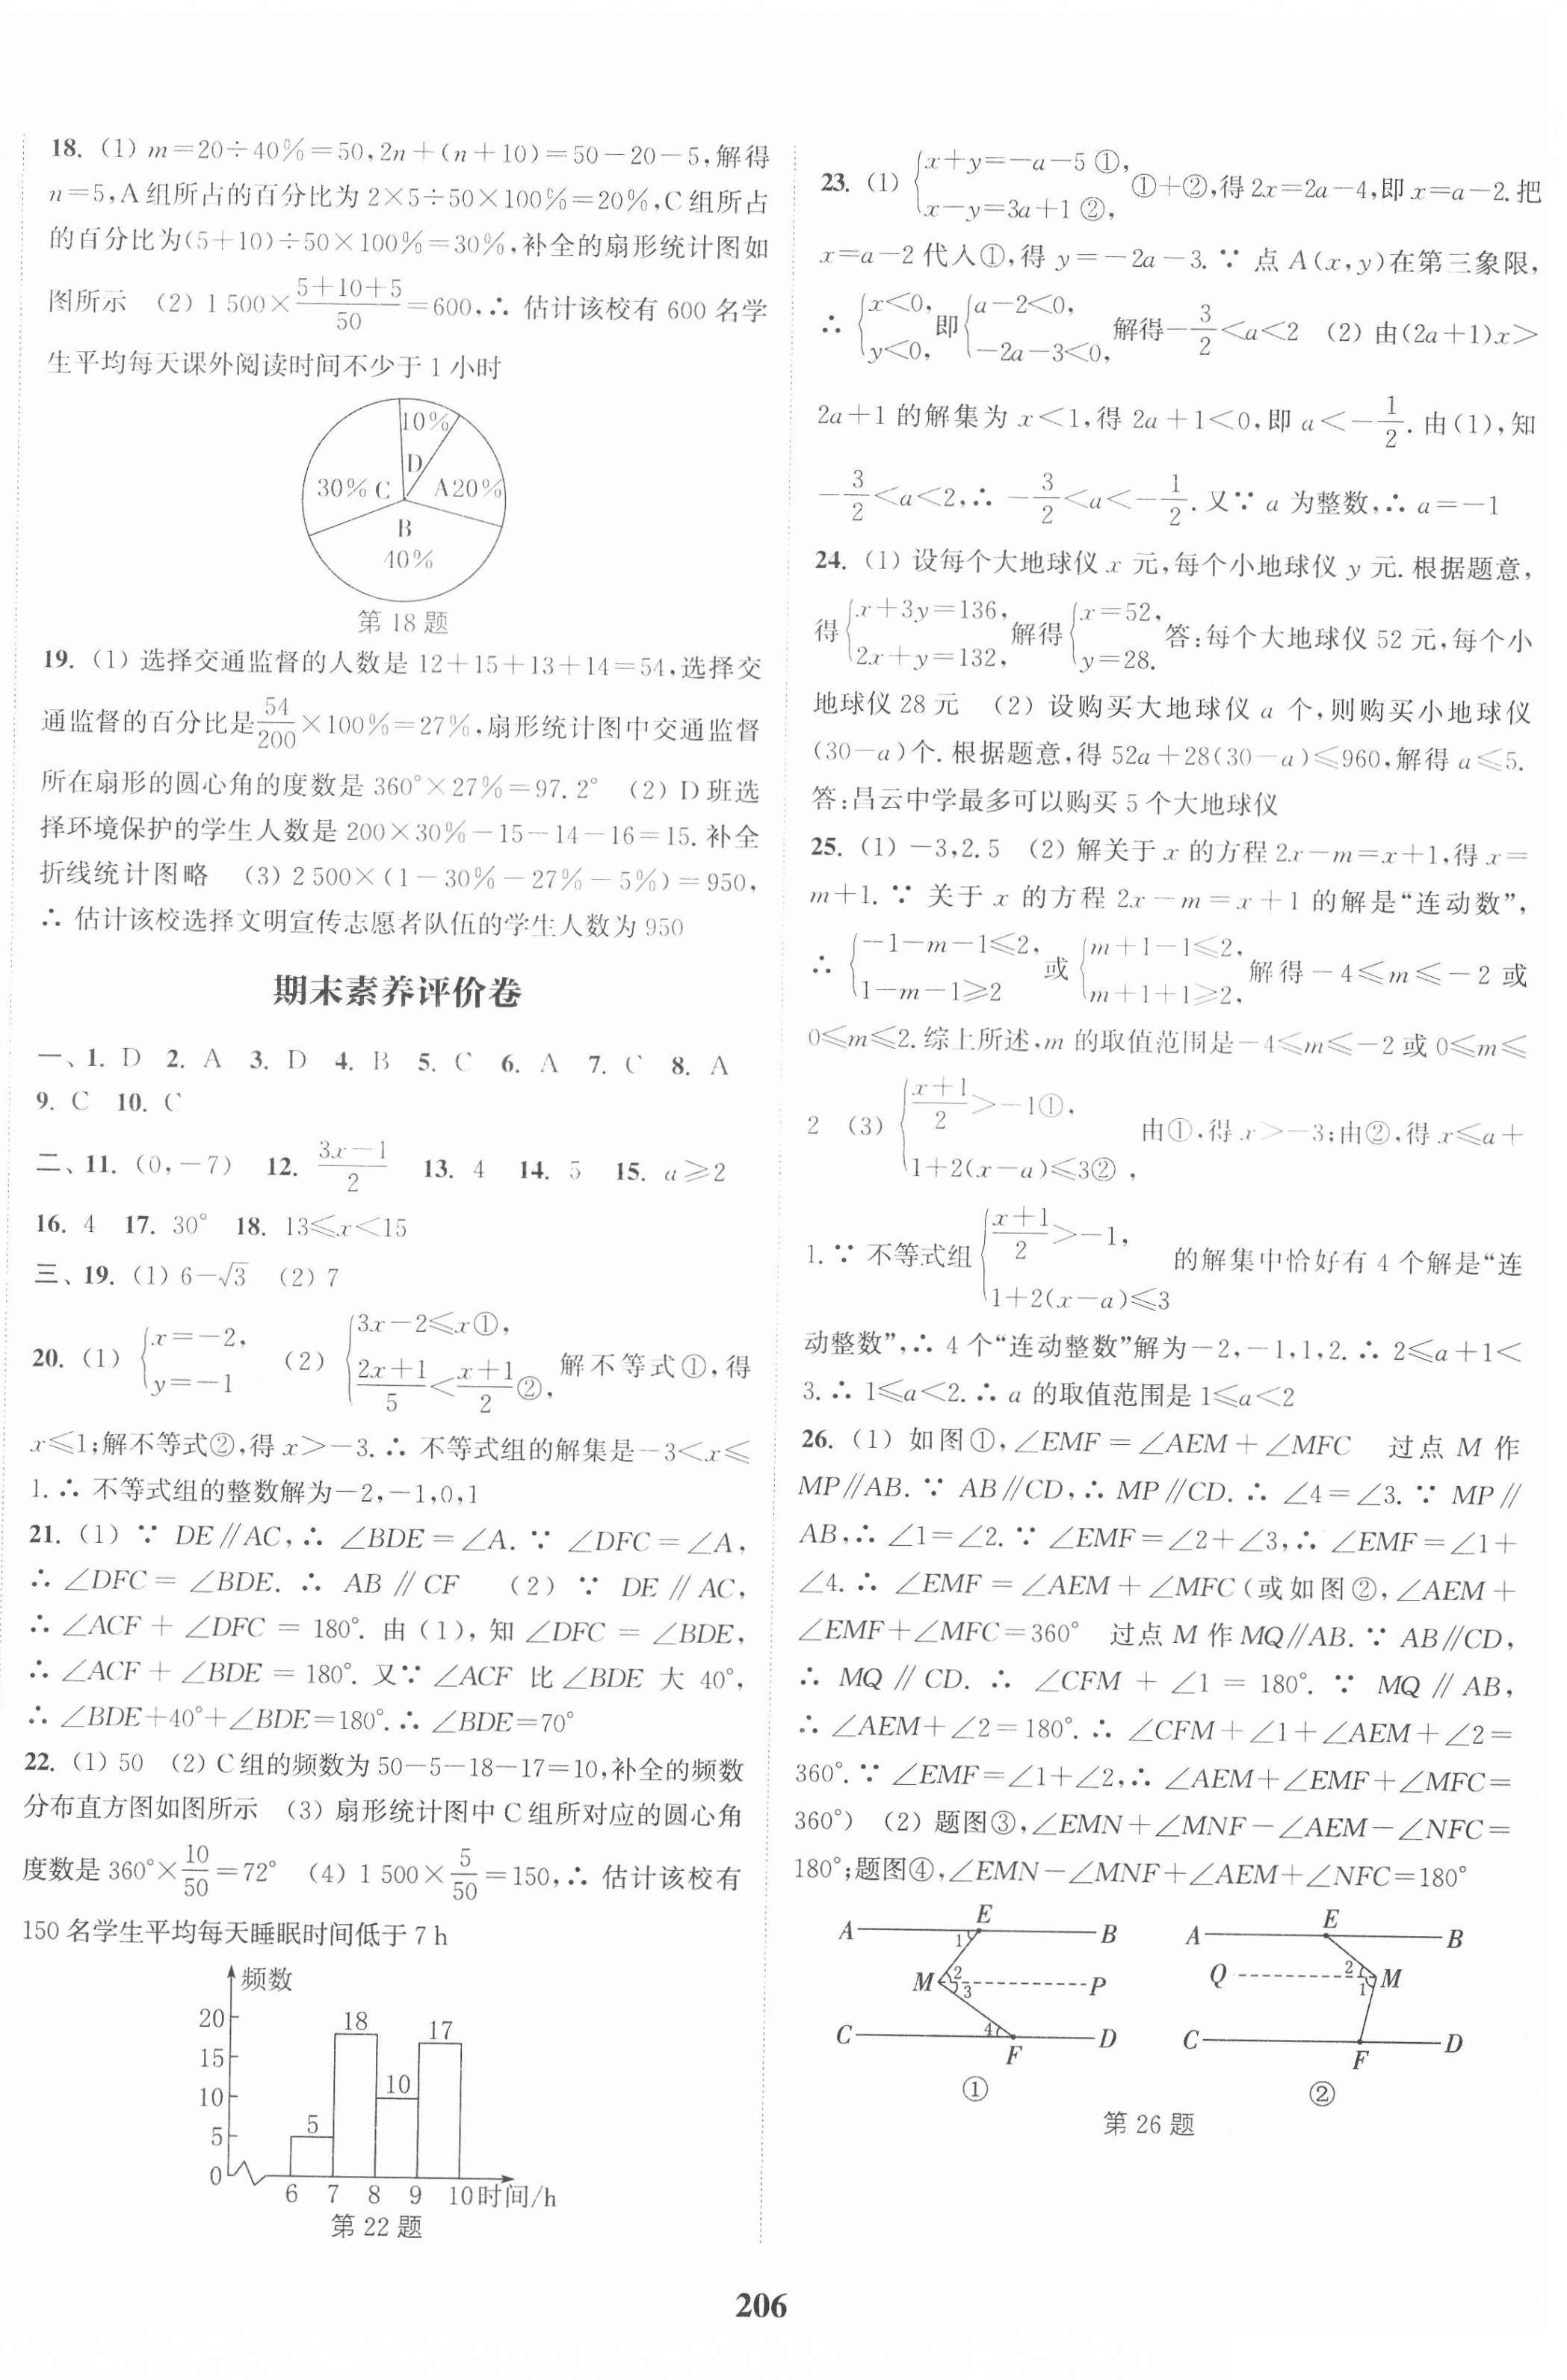 18. (1) m=20÷40%=50,2n+(n+10)=50-20-5,解得
n=5,A组所占的百分比为2×5÷50×100%=20%,C组所占
的百分比为(5+10)÷50×100%=30%,补全的扇形统计图如
图所示 (2) 1 500×\frac{5+10+5}{50}=600,∴ 估计该校有600名学
生平均每天课外阅读时间不少于1小时
10%
D
30% C A20%
B
40%
第18题
19. (1) 选择交通监督的人数是12+15+13+14=54,选择交
通监督的百分比是\frac{54}{200}×100%=27%,扇形统计图中交通监督
所在扇形的圆心角的度数是360°×27%=97.2° (2) D班选
择环境保护的学生人数是200×30%-15-14-16=15.补全
折线统计图略 (3) 2 500×(1-30%-27%-5%)=950,
∴ 估计该校选择文明宣传志愿者队伍的学生人数为950
期末素养评价卷
一、1. D 2. A 3. D 4. B 5. C 6. A 7. C 8. A
9. C 10. C
二、11. (0,-7) 12. \frac{3x-1}{2} 13. 4 14. 5 15. a≥2
16. 4 17. 30° 18. 13≤x<15
三、19. (1) 6-√3 (2) 7
20. (1) {x=-2, y=-1 (2) {3x-2≤x①, \frac{2x+1}{5}<\frac{x+1}{2}②, 解不等式①,得
x≤1;解不等式②,得x>-3.∴ 不等式组的解集是-3<x≤
1.∴ 不等式组的整数解为-2,-1,0,1
21. (1) ∵ DE∥AC,∴ ∠BDE=∠A.∵ ∠DFC=∠A,
∴ ∠DFC=∠BDE.∴ AB∥CF (2) ∵ DE∥AC,
∴ ∠ACF+∠DFC=180°.由(1),知∠DFC=∠BDE,
∴ ∠ACF+∠BDE=180°.又∵ ∠ACF比∠BDE大40°,
∴ ∠BDE+40°+∠BDE=180°.∴ ∠BDE=70°
22. (1) 50 (2) C组的频数为50-5-18-17=10,补全的频数
分布直方图如图所示 (3) 扇形统计图中C组所对应的圆心角
度数是360°×\frac{10}{50}=72° (4) 1 500×\frac{5}{50}=150,∴ 估计该校有
150名学生平均每天睡眠时间低于7 h
频数
20
15
10
5
0
5
18
10
17
6 7 8 9 10时间/h
第22题
23. (1) {x+y=-a-5 ①, x-y=3a+1 ②, ①+②,得2x=2a-4,即x=a-2.把
x=a-2代入①,得y=-2a-3.∵ 点A(x,y)在第三象限,
∴ {x<0, y<0, 即{a-2<0, -2a-3<0, 解得-\frac{3}{2}<a<2 (2) 由(2a+1)x>
2a+1的解集为x<1,得2a+1<0,即a<-\frac{1}{2}.由(1),知
-\frac{3}{2}<a<2,∴ -\frac{3}{2}<a<-\frac{1}{2}.又∵ a为整数,∴ a=-1
24. (1) 设每个大地球仪x元,每个小地球仪y元.根据题意,
得{x+3y=136, 2x+y=132, 解得{x=52, y=28. 答:每个大地球仪52元,每个小
地球仪28元 (2) 设购买大地球仪a个,则购买小地球仪
(30-a)个.根据题意,得52a+28(30-a)≤960,解得a≤5.
答:昌云中学最多可以购买5个大地球仪
25. (1) -3,2.5 (2) 解关于x的方程2x-m=x+1,得x=
m+1.∵ 关于x的方程2x-m=x+1的解是“连动数”,
∴ {-1-m-1≤2, 1-m-1≥2 或 {m+1-1≤2, m+1+1≥2, 解得-4≤m≤-2或
0≤m≤2.综上所述,m的取值范围是-4≤m≤-2或0≤m≤
2 (3) {\frac{x+1}{2}>-1①, 1+2(x-a)≤3②, 由①,得x>-3;由②,得x≤a+
1.∵ 不等式组{\frac{x+1}{2}>-1, 1+2(x-a)≤3 的解集中恰好有4个解是“连
动整数”,∴ 4个“连动整数”解为-2,-1,1,2.∴ 2≤a+1<
3.∴ 1≤a<2.∴ a的取值范围是1≤a<2
26. (1) 如图①,∠EMF=∠AEM+∠MFC 过点M作
MP∥AB.∵ AB∥CD,∴ MP∥CD.∴ ∠4=∠3.∵ MP∥
AB,∴ ∠1=∠2.∵ ∠EMF=∠2+∠3,∴ ∠EMF=∠1+
∠4.∴ ∠EMF=∠AEM+∠MFC(或如图②,∠AEM+
∠EMF+∠MFC=360° 过点M作MQ∥AB.∵ AB∥CD,
∴ MQ∥CD.∴ ∠CFM+∠1=180°.∵ MQ∥AB,
∴ ∠AEM+∠2=180°.∴ ∠CFM+∠1+∠AEM+∠2=
360°.∵ ∠EMF=∠1+∠2,∴ ∠AEM+∠EMF+∠MFC=
360°) (2) 题图③,∠EMN+∠MNF-∠AEM-∠NFC=
180°;题图④,∠EMN-∠MNF+∠AEM+∠NFC=180°
A E B
1
M 2 3 P
C 4 F D
①
A E B
Q 2 1 M
C F D
②
第26题
206